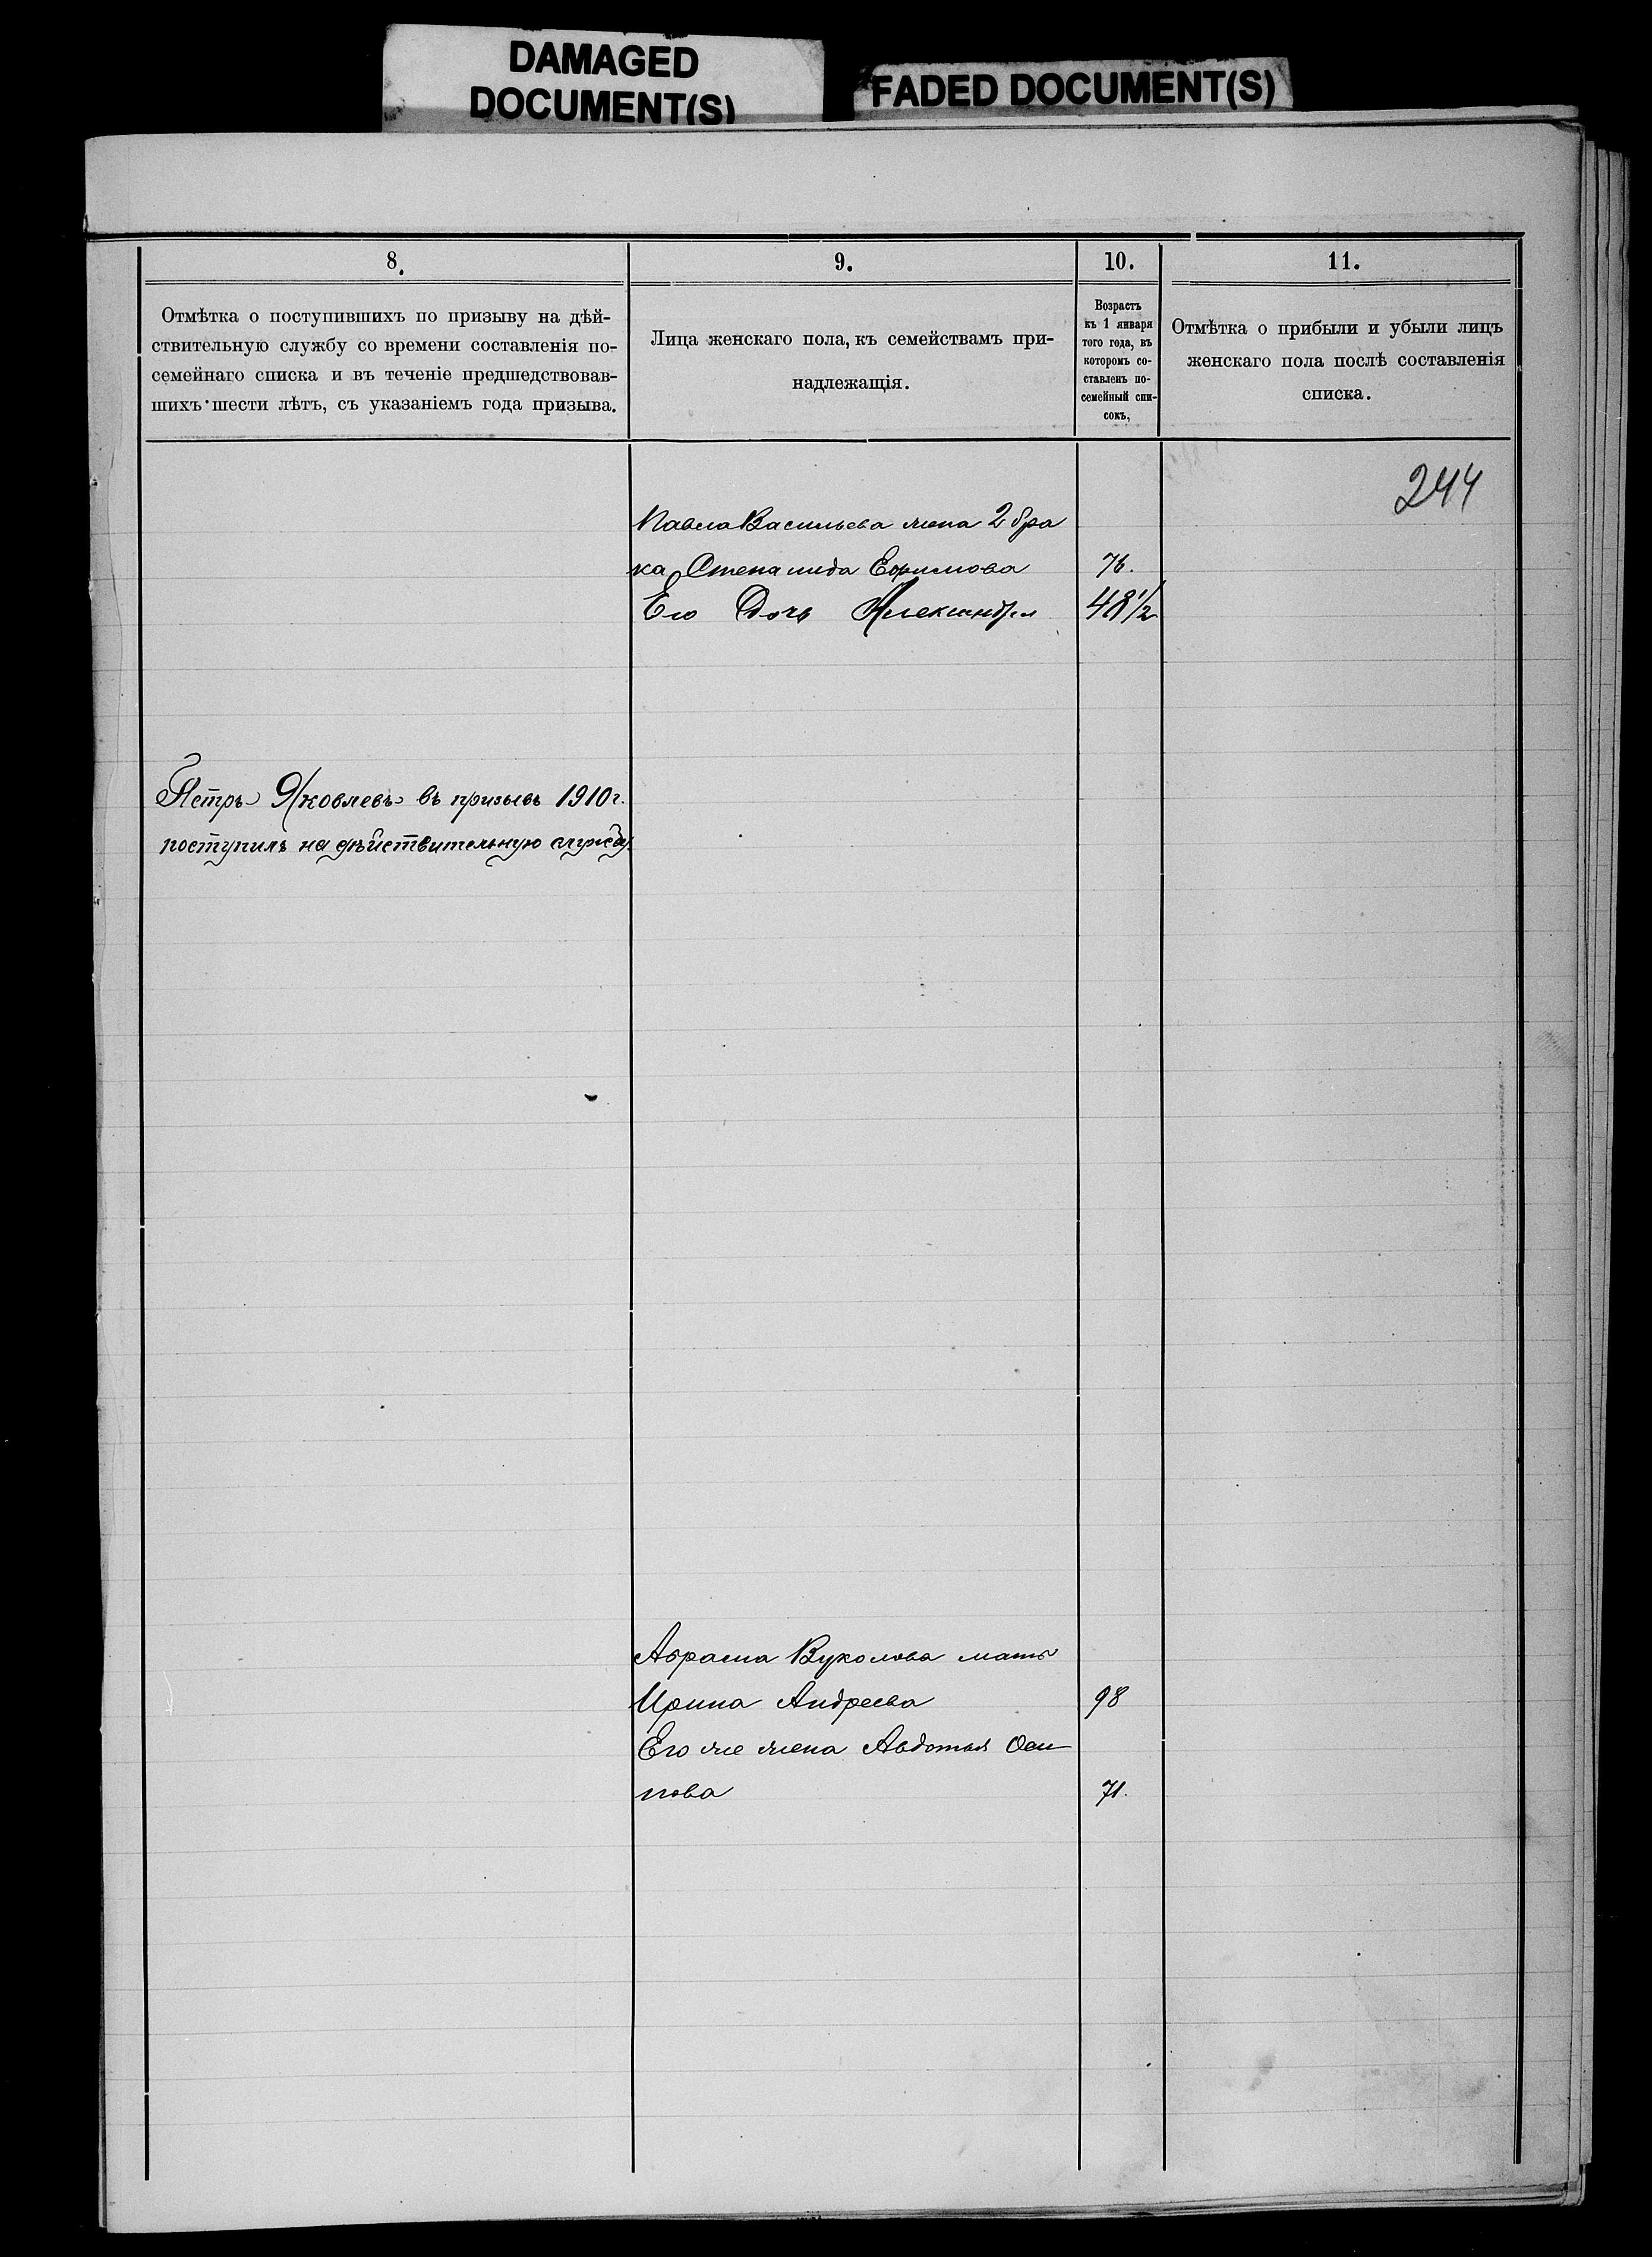 DAMAGED
DOCUMENT(S)
FADED DOCUMENT(S)
8.
9.
10.
11.
Отмѣтка о поступившихъ по призыву на дѣй-
ствительную службу со времени составленія по-
семейнаго списка и въ теченіе предшедствовав-
шихъ шести лѣтъ, съ указаніемъ года призыва.
Лица женскаго пола, къ семействамъ при-
надлежащія.
Возрастъ
къ 1 января
того года, въ
которомъ со-
ставленъ по-
семейный спи-
сокъ,
Отмѣтка о прибыли и убыли лицъ
женскаго пола послѣ составленія
списка.
244
Павла Васильева жена 2 бра
ка Степанида Ефимова 76.
Его Дочь Александра 48 1/2
Петръ Яковлевъ въ призывъ 1910 г.
поступилъ на дѣйствительную службу.
Абрама Вуколова мать
Ирина Андреева 98
Его же жена Авдотья Оси
пова 71.